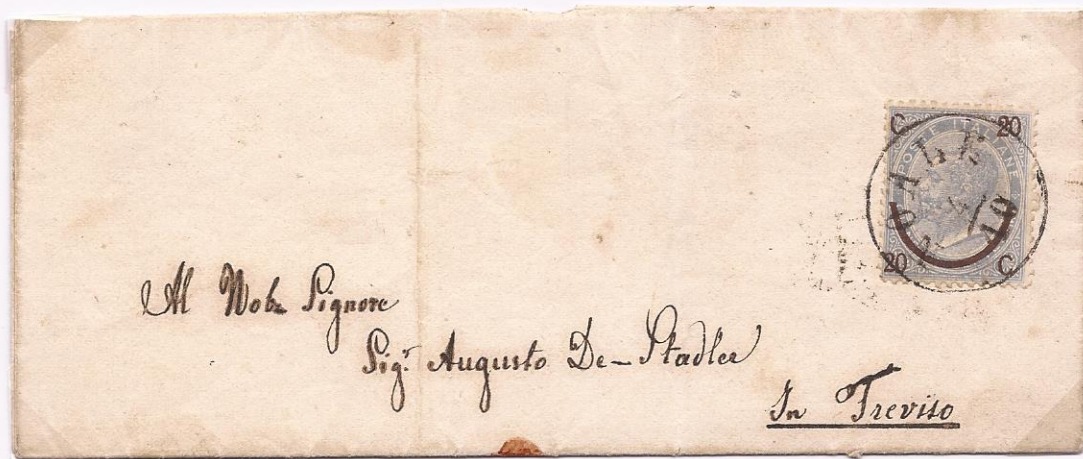 C 20
POSTE ITALIANE
NOALE
10
20 C
Al Nob. Signore
Sig.r Augusto De-Stadler
In Treviso